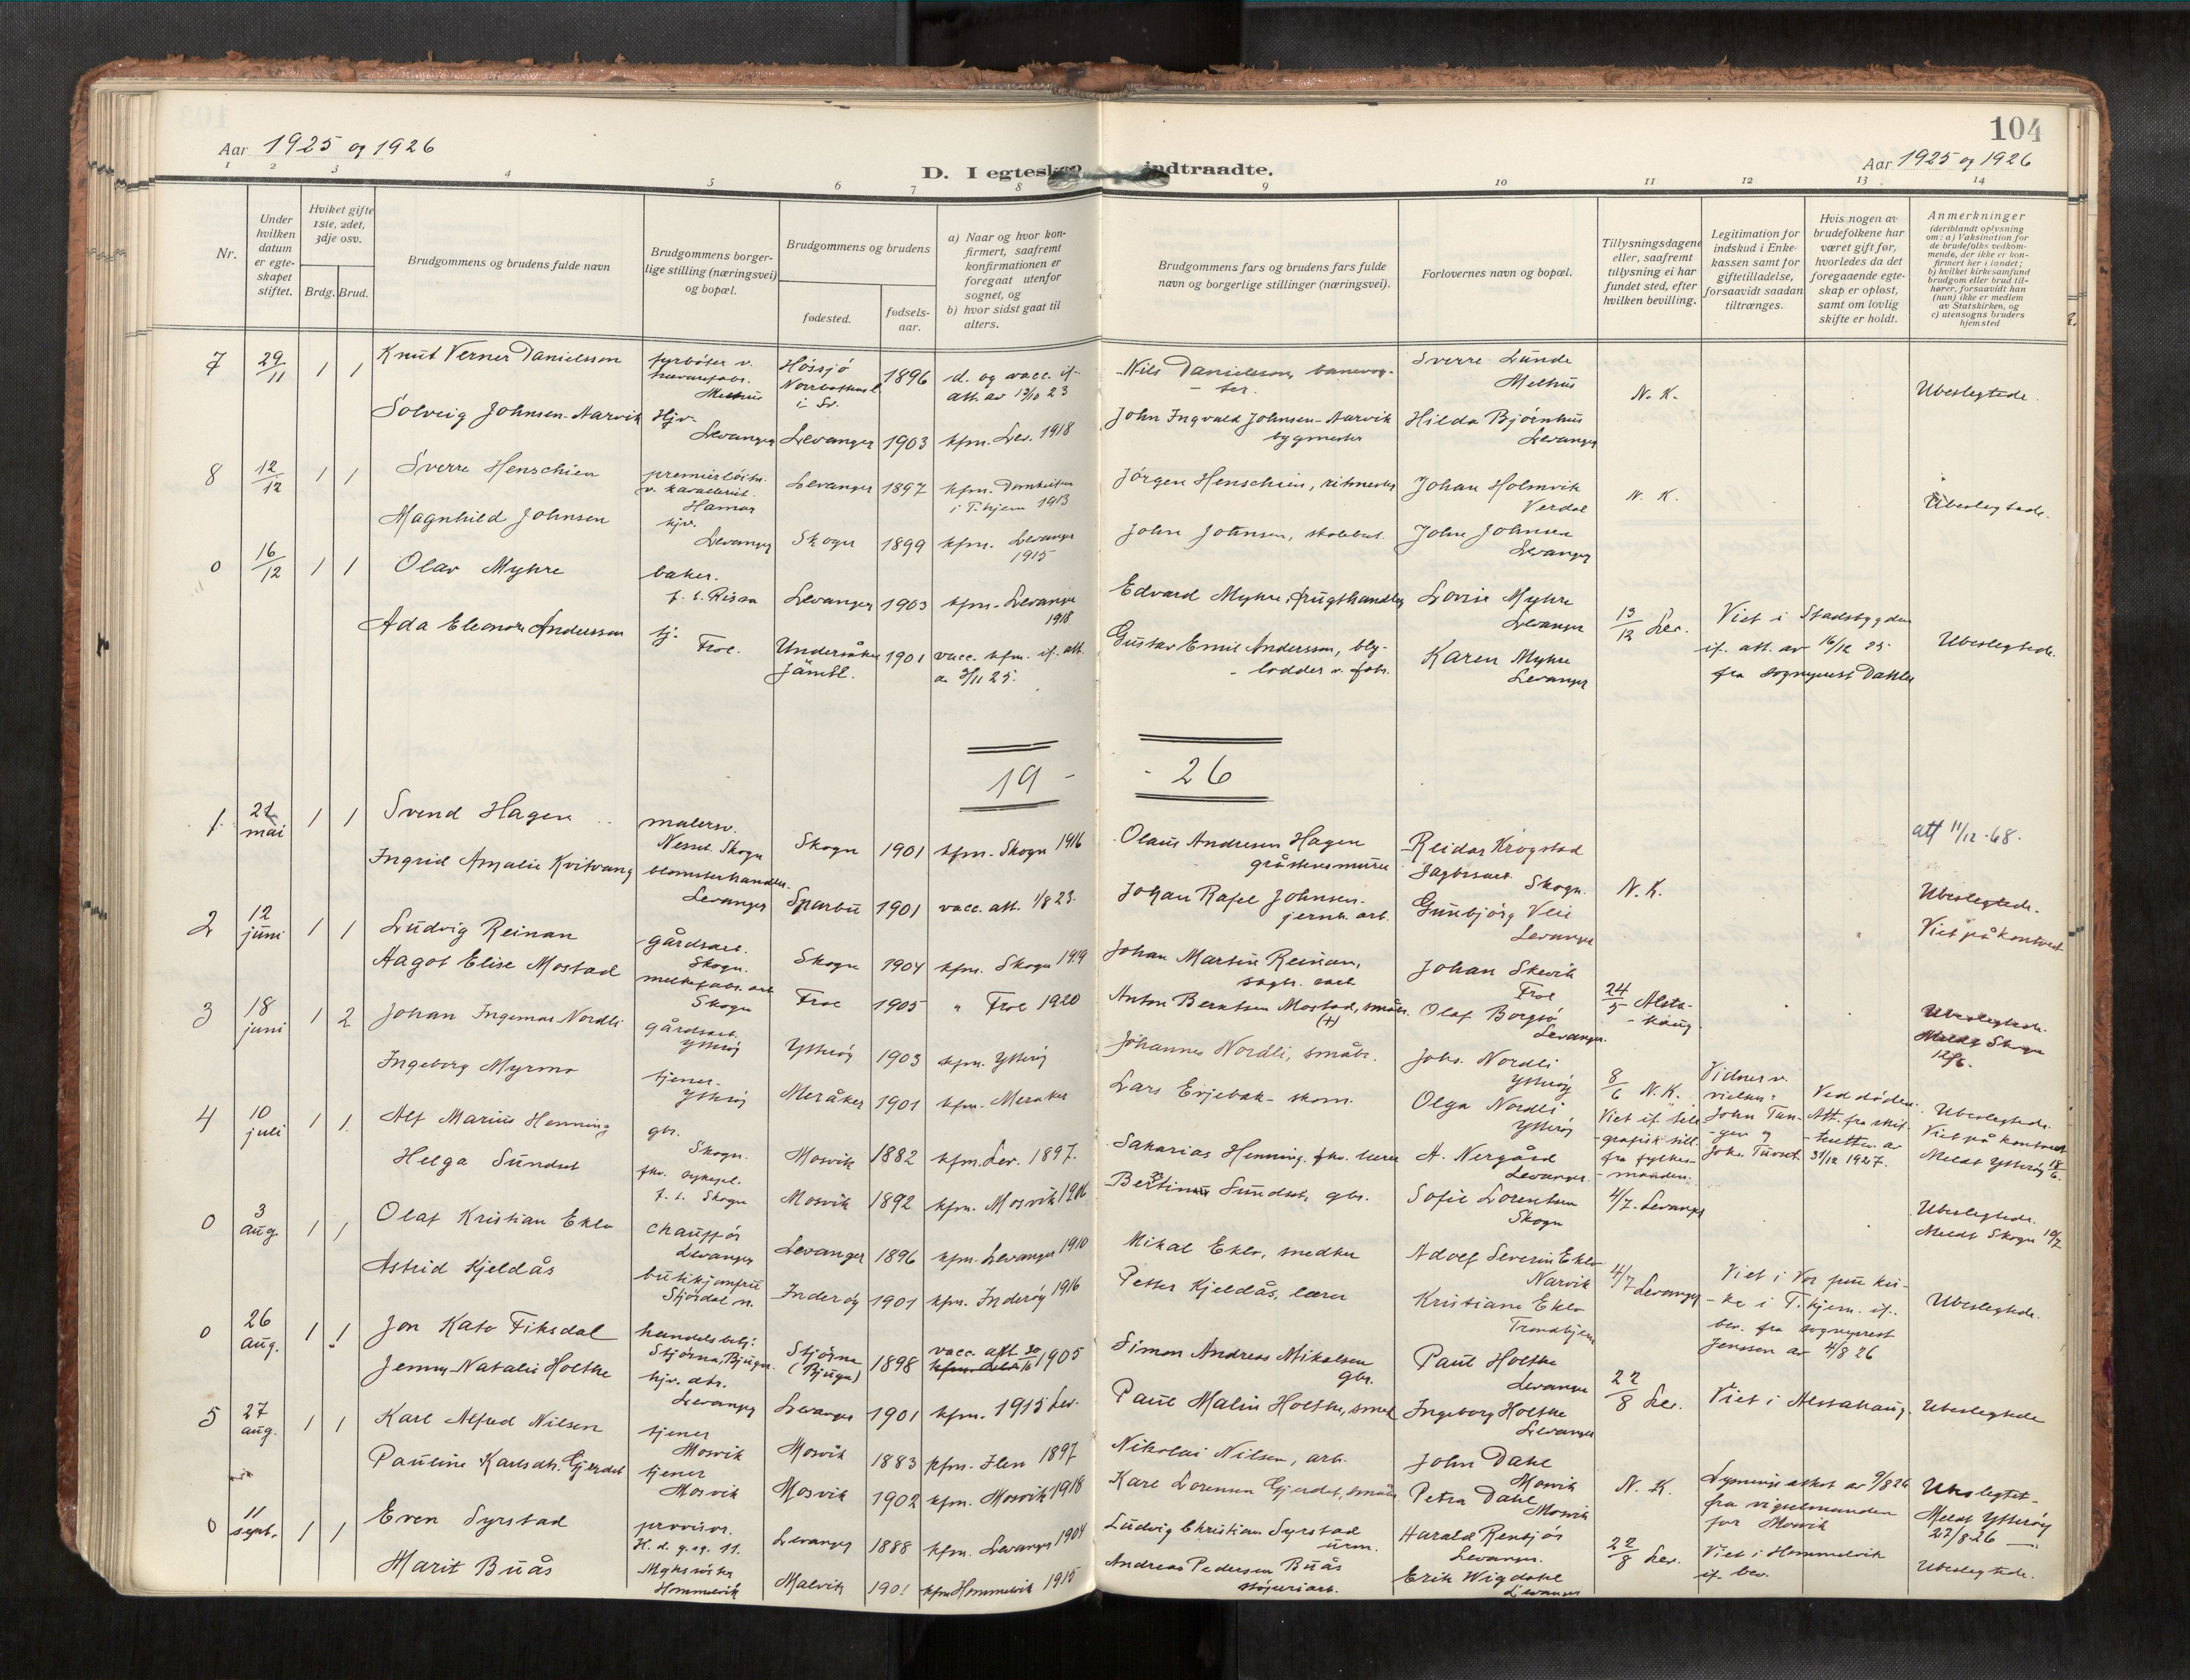 104
Aar 1925 og 1926
Aar 1925 og 1926
D. I egteskap indtraadte.
1 2 3 4 5 6 7 8 9 10 11 12 13 14
Nr.
Under hvilken datum er egteskapet stiftet.
Hvilket gifte 1ste, 2det, 3dje osv.
Brdg. Brud.
Brudgommens og brudens fulde navn
Brudgommens borgerlige stilling (næringsvei) og bopæl.
Brudgommens og brudens
fødested.
fødselsaar.
a) Naar og hvor konfirmert, saafremt konfirmationen er foregaat utenfor sognet, og
b) hvor sidst gaat til alters.
Brudgommens fars og brudens fars fulde navn og borgerlige stillinger (næringsvei).
Forlovernes navn og bopæl.
Tillysningsdagene eller, saafremt tillysning ei har fundet sted, efter hvilken bevilling.
Legitimation for indskud i Enkekassen samt for giftetilladelse, forsaavidt saadan tiltrænges.
Hvis nogen av brudefolkene har været gift før, hvorledes da det foregaaende egteskap er opløst, samt om lovlig skifte er holdt.
Anmerkninger (deriblandt oplysning om: a) Vaksination for de brudefolks vedkommende, der ikke er konfirmert her i landet; b) hvilket kirkesamfund brudgom eller brud tilhører, forsaavidt han (hun) ikke er medlem av Statskirken, og c) utensogns bruders hjemsted
7 29/11 1 1 Knut Verner Danielsson fyrbøter v. Melhus Hössjö i Sv. 1896 d. og vacc. if. att. av 13/10 23 Nils Danielsson, banevog- Sverre Lunde Melhus N. K. Ubeslegtede.
Solveig Johnsen-Aarvik Hjv. Levanger Levanger 1903 kfm. Lev. 1918 John Ingvald Johnsen-Aarvik bygmester Hilda Bjørnhus Levanger
8 12/12 1 1 Sverre Henschien premierløitn. v. kavalleriet. Hamar Levanger 1897 kfm. Domkirken i T.hjem 1913 Jørgen Henschien, ritmester Johan Holmvik Verdal N. K. Ubeslegtede.
Magnhild Johnsen hjv. Levanger Skogn 1899 kfm. Levanger 1915 John Johnsen, skolebest. John Johnsen Levanger
0 16/12 1 1 Olav Myhre baker. f. t. Rissa Levanger 1903 kfm. Levanger 1918 Edvard Myhre, frugthandler Lovise Myhre Levanger 13/12 Lev. Viet i Stadsbygden if. att. av 16/12 25 fra sogneprest Dahler Ubeslegtede.
Ada Eleonora Andersson tj. Frol. Undersåker Jämtl. 1901 vacc. kfm. if. att. av 3/11 25. Gustav Emil Andersson, bly- -lodder v. fabr. Karen Myhre Levanger
19 - - 26
1. 21 mai 1 1 Svend Hagen malersv. Nesset Skogn Skogn 1901 kfm. Skogn 1916 Olaus Andresen Hagen gråstensmurer Reidar Krogstad Skogn. N. K. att 11/12-68. Ubeslegtede. Viet på kontoret
Ingrid Amalie Kvitvang blomsterhandler. Levanger Sparbu 1901 vacc. att. 1/8 23. Johan Rafel Johnsen. jernb. arb. Gunbjørg Veie Levanger
2 12 juni 1 1 Ludvig Reinan gårdsarb. Skogn. Skogn 1904 kfm. Skogn 1919 Johan Martin Reinan, Johan Skevik Frol 24/5 Alsta- -haug. Ubeslegtede. Meldt Skogn 12/6.
Aagot Elise Mostad melkefabr. arb Skogn Frol 1905 " Frol 1920 Anton Berntsen Mostad, småbr. (+) Olaf Borgsø Levanger.
3 18 juni 1 2 Johan Ingemar Nordli gårdsarb. Ytterøy Ytterøy 1903 kfm. Ytterøy Johannes Nordli, småbr. Johs. Nordli Ytterøy 8/6 N.K. Viet if. tele -grafisk till. fra fylkes- -manden. Vidner v. vielsen: John Tan- -gen og Johs. Tuset. Ved døden. Att. fra skif- -teretten av 31/12 1927. Ubeslegtede. Viet på kontoret Meldt Ytterøy 18/6.
Ingeborg Myrmo tjener. Ytterøy Meråker 1901 kfm. Meraker Lars Evjebak- skom. Olga Nordli Ytterøy
4 10 juli 1 1. Alf Marius Henning gbr. Skogn. Mosvik 1882 kfm. Lev. 1897. Sakarias Henning. fhv. lærer A. Nergård Levanger 4/7. Levanger Ubeslegtede. Meldt Skogn 10/7
Helga Sundset fhv. sykepl. f. t. Skogn Mosvik 1892 kfm. Mosvik 1906 Sundset, gbr. Sofie Lorentsen Skogn
0 3 aug. 1 1 Olaf Kristian Eklo chauffør Levanger Levanger 1896 kfm. Levanger 1910 Mikal Eklo, snedker Adolf Severin Eklo Narvik 4/7 Levanger Viet i Vor frue kir- -ke i T.hjem. if. bev. fra sogneprest Jenssen av 4/8 26 Ubeslegtede.
Astrid Kjeldås butikjomfru Stjørdal n. Inderøy 1901 kfm. Inderøy 1916 Petter Kjeldås, lærer Kristiane Eklo Trondhjem
0 26 aug. 1 1 Jon Kato Fiksdal handelsbetj. Stjørna, Bjugn. Stjørna (Bjugn) 1898 vacc. att 30 1905 Simon Andreas Mikalsen gbr. Paul Holthe Levanger 22/8 Lev. Viet i Alstahaug. Ubeslegtede
Jenny Natalie Holthe hjv. dtr. Levanger Levanger 1901 kfm. 1915 Lev. Paul Malin Holthe, smed Ingeborg Holthe Levanger
5 27 aug. 1 1 Karl Alfred Nilsen tjener Mosvik Mosvik 1883 kfm. Ilen 1897 Nikolai Nilsen, arb. John Dahl Mosvik N. K. Lysningsattest av 9/8 26 fra vigselmanden for Mosvik Ubeslegtet- Meldt Ytterøy 27/8 26 —.
Pauline Karlsdtr. Gjerdet tjener Mosvik Mosvik 1902 kfm. Mosvik 1918 Karl Lorensen Gjerdet, småbr Petra Dahl Mosvik
0 11 sept. 1 1 Even Syrstad provisor. Levanger 1888 kfm. Levanger 1904 Ludvig Christian Syrstad urm. Harald Rensjøs Levanger. 22/8 Lev. Viet i Hommelvik if. bev. Ubeslegtede.
Marit Buås Hommelvik Malvik 1901 kfm Hommelvik 1915 Andreas Pedersen Buås Erik Wigdahl Levanger